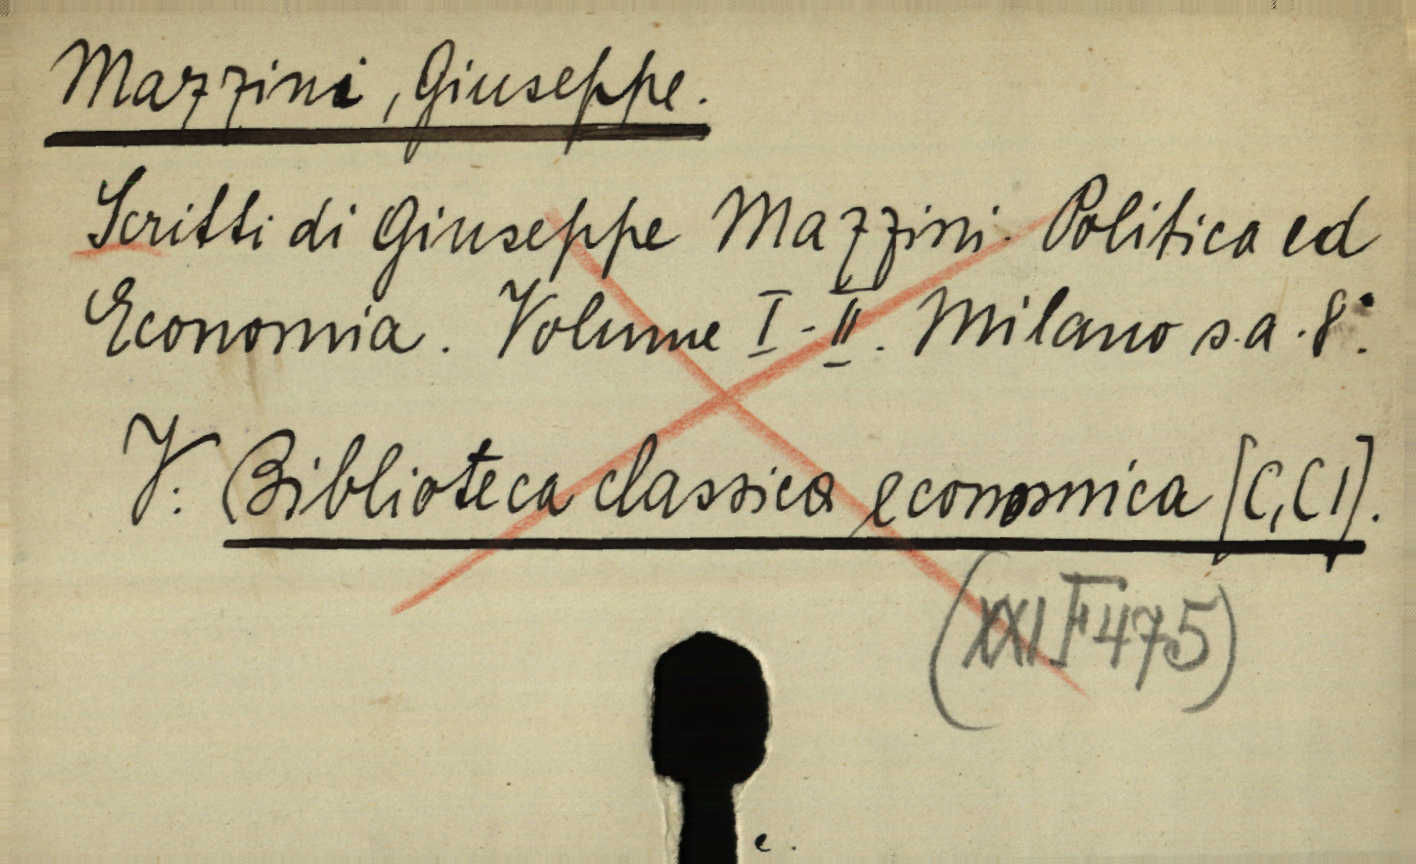 Mazzini, Giuseppe.
Scritti di Giuseppe Mazzini. Politica ed
Economia. Volume I-II. Milano s.a. 8°.
V: Biblioteca classica economica [C, CI].
(XXI F 475)
c.